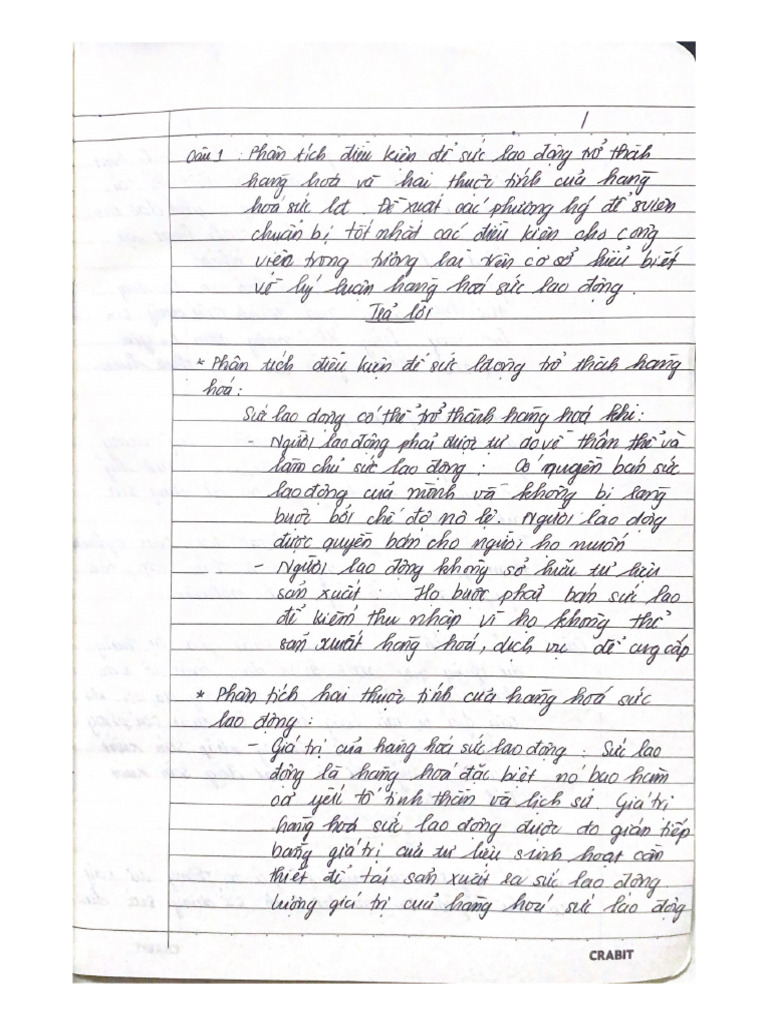 1
Câu 1 : Phân tích điều kiện để sức lao động trở thành
hàng hoá và hai thuộc tính của hàng
hoá sức lđ. Đề xuất các phương hg để svien
chuẩn bị tốt nhất các điều kiện cho công
viên trong tương lai trên cơ sở hiểu biết
về lý luận hàng hoá sức lao động.
Trả lời
* Phân tích điều kiện để sức lđộng trở thành hàng
hoá :
Sức lao động có thể trở thành hàng hoá khi :
- Người lao động phải được tự do về thân thể và
làm chủ sức lao động : Có quyền bán sức
lao động của mình và không bị ràng
buộc bởi chế độ nô lệ. Người lao động
được quyền bán cho người họ muốn
- Người lao động không sở hữu tư liệu
sản xuất : Họ buộc phải bán sức lao
để kiếm thu nhập vì họ không thể
sản xuất hàng hoá, dịch vụ để cung cấp
* Phân tích hai thuộc tính của hàng hoá sức
lao động :
- Giá trị của hàng hoá sức lao động : Sức lao
động là hàng hoá đặc biệt nó bao hàm
cả yếu tố tinh thần và lịch sử. Giá trị
hàng hoá sức lao động được đo gián tiếp
bằng giá trị của tư liệu sinh hoạt cần
thiết để tái sản xuất ra sức lao động.
Lượng giá trị của hàng hoá sức lao động
CRABIT